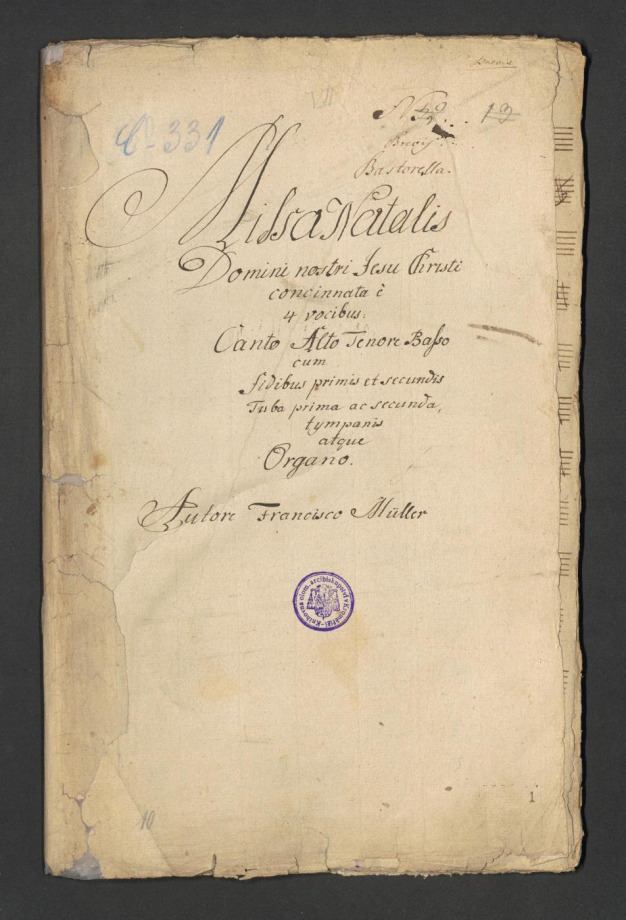 Brevis
VII
No 49... 13
C. 331
Brevis...
Bastorella.
Missa Natalis
Domini nostri Jesu Christi
concinnata è
4 vocibus:
Canto Alto Tenore Basso
cum
fidibus primis et secundis
Tuba prima ac secunda,
tympanis
atque
Organo.
Autore Francisco Müller
Knihovna olom. arcibiskupství v Kroměříži
1
10